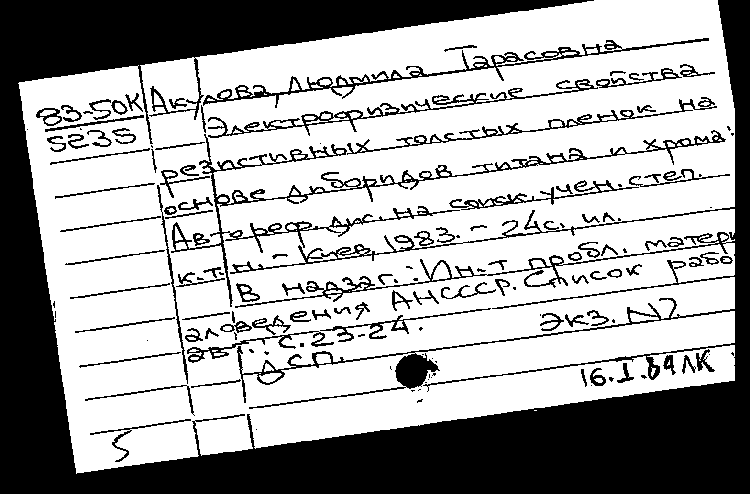 83-50К Акулова, Людмила Тарасовна
5235 Электрофизические свойства
резистивных толстых пленок на
основе диборидов титана и хрома:
Автореф. дис. на соиск. учен. степ.
к.т.н. - Киев, 1983. - 24с., ил.
В надзаг.: Ин-т пробл. матери
аловедения АНСССР. Список рабо
авт.: с.23-24. Экз. N7
ДСП.
16.I.84 ЛК
5